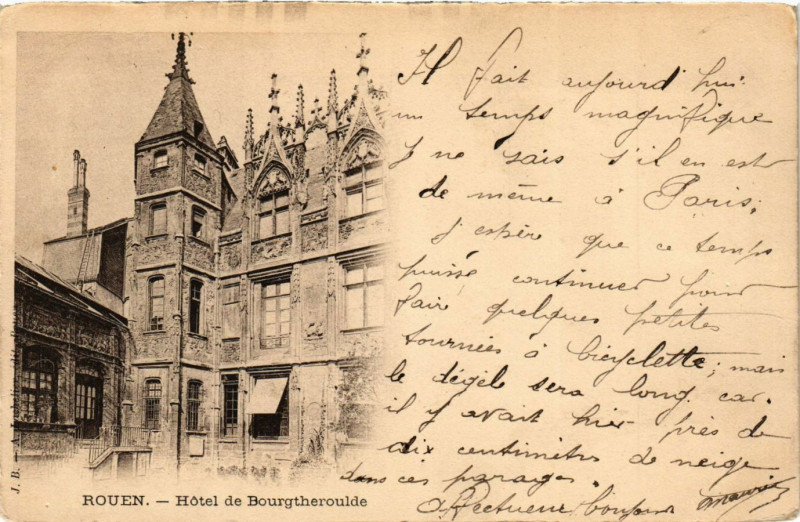 Il fait aujourd'hui
un temps magnifique
je ne sais s'il en est
de même à Paris;
j'espère que ce temps
puisse continuer pour
faire quelques petites
tournées à bicyclette; mais
le dégèle sera long car
il y avait hier près de
dix centimètres de neige
dans ces parages.
Affectueux bonjour Maurice
ROUEN. — Hôtel de Bourgtheroulde
J. B. — A.